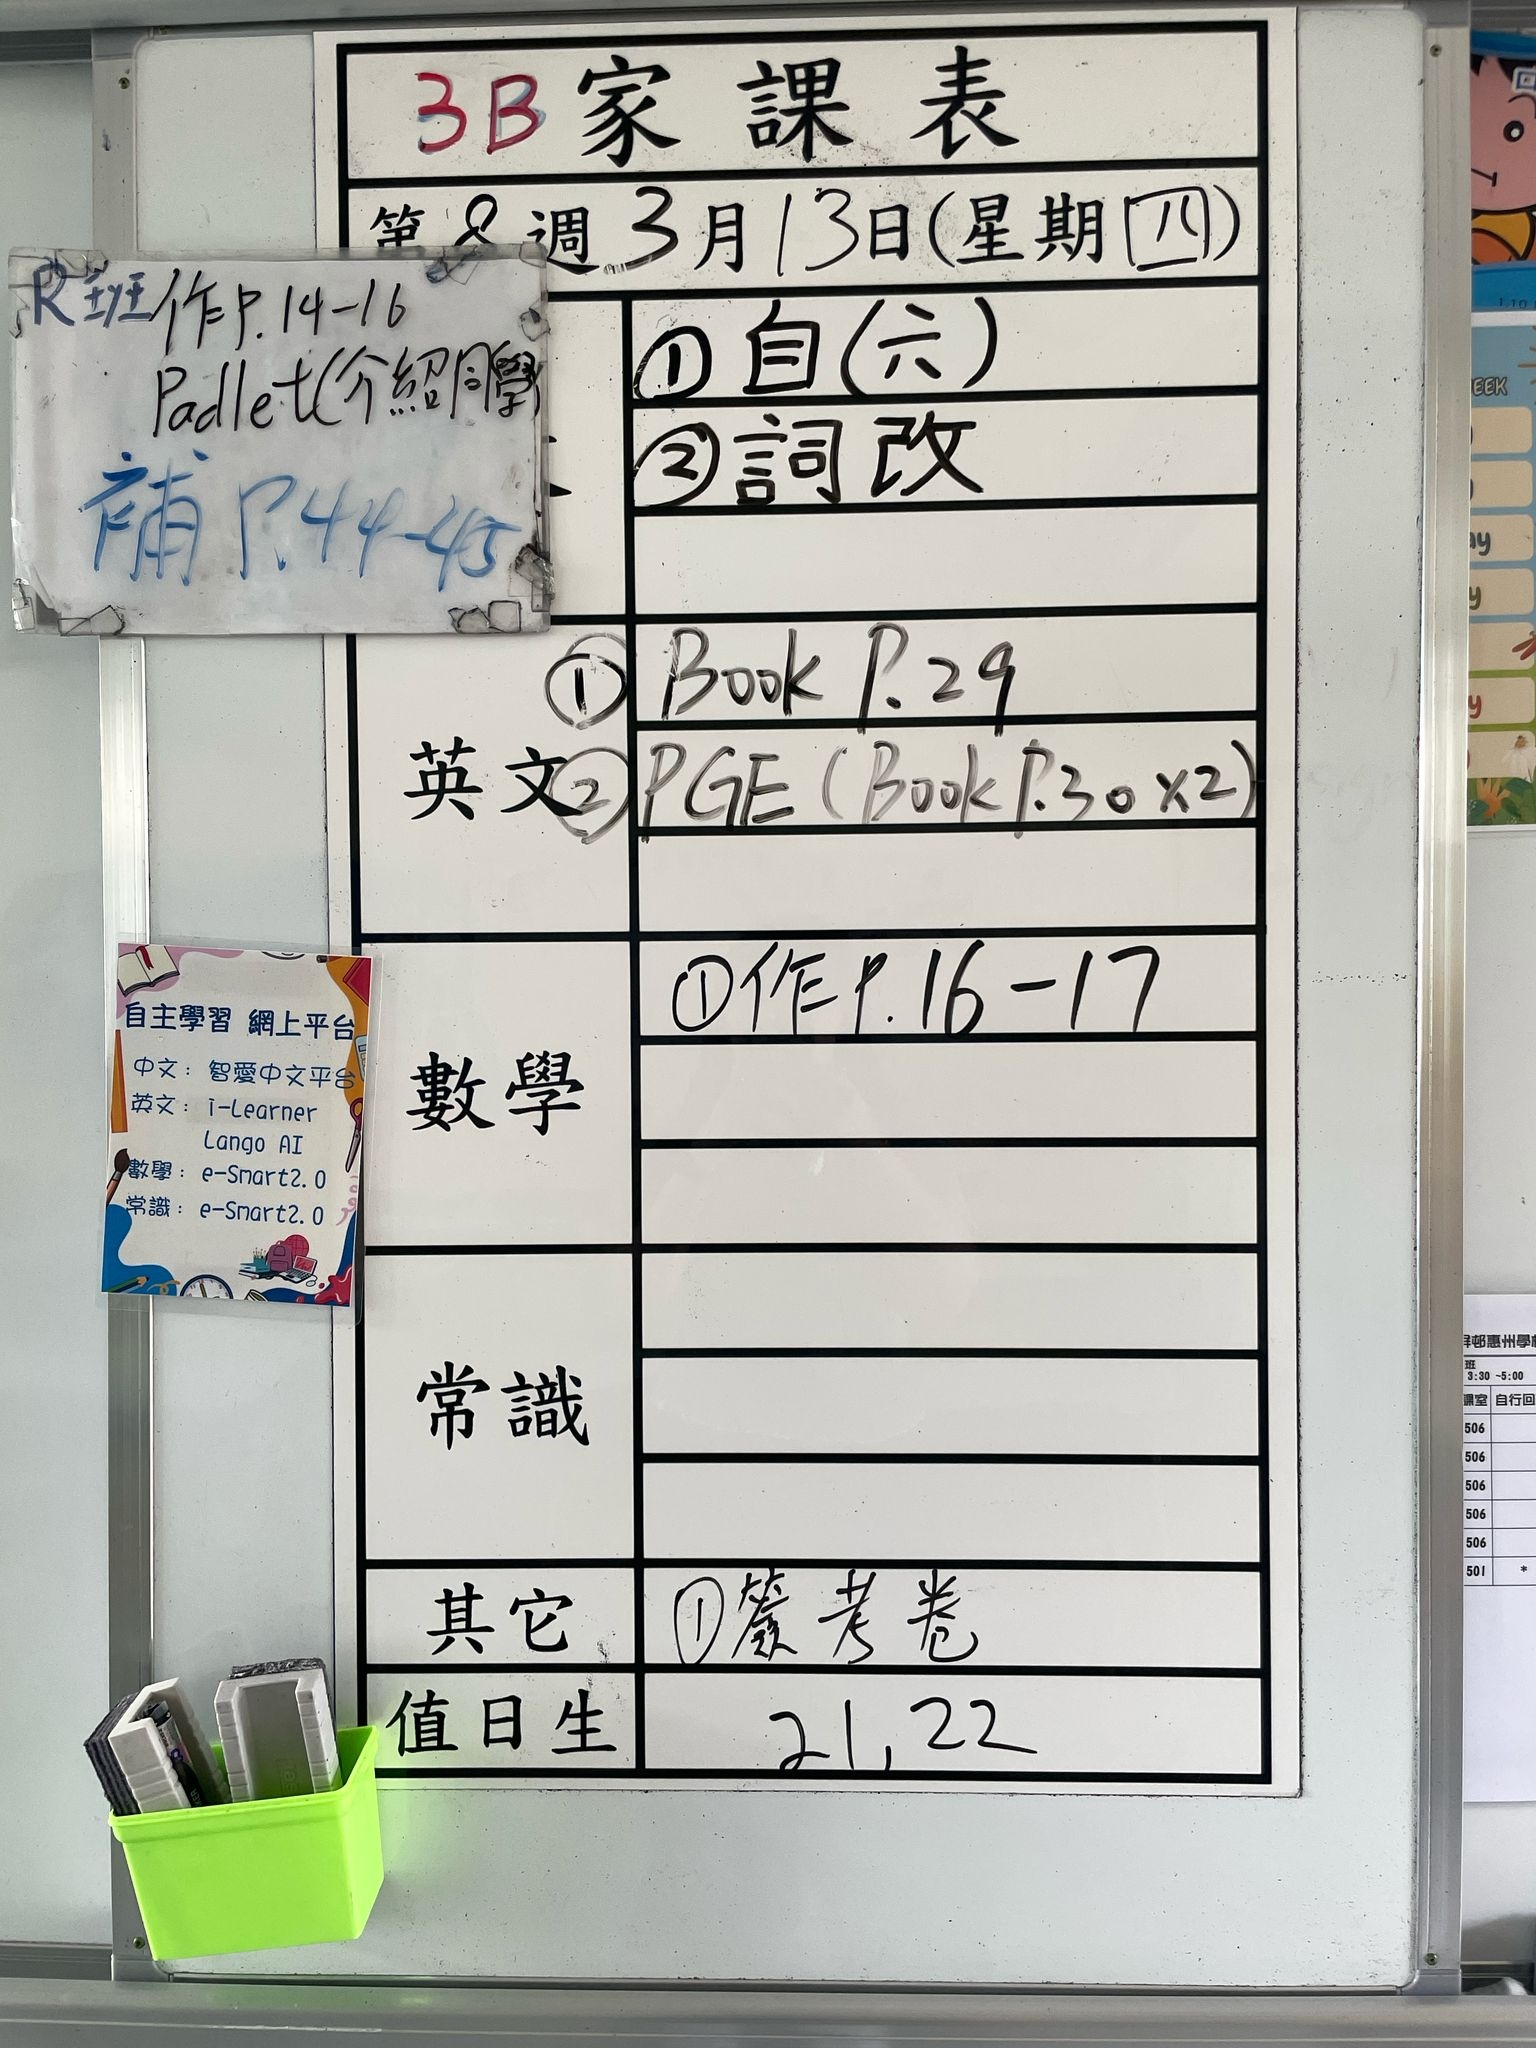 3B 家課表
第8週3月13日(星期四)
R班 作P.14-16
Padlet(介紹同學)
補 P.44-45
① 自(六)
② 詞改
英文
① Book P.29
② PGE (Book P.30 x2)
數學
① 作P.16-17
常識
其它
① 簽考卷
值日生
21, 22
自主學習 網上平台
中文: 智愛中文平台
英文: i-Learner
Lango AI
數學: e-Smart2.0
常識: e-Smart2.0
惠州學
班
3:30 ~5:00
課室 自行回
506
506
506
506
506
501 *